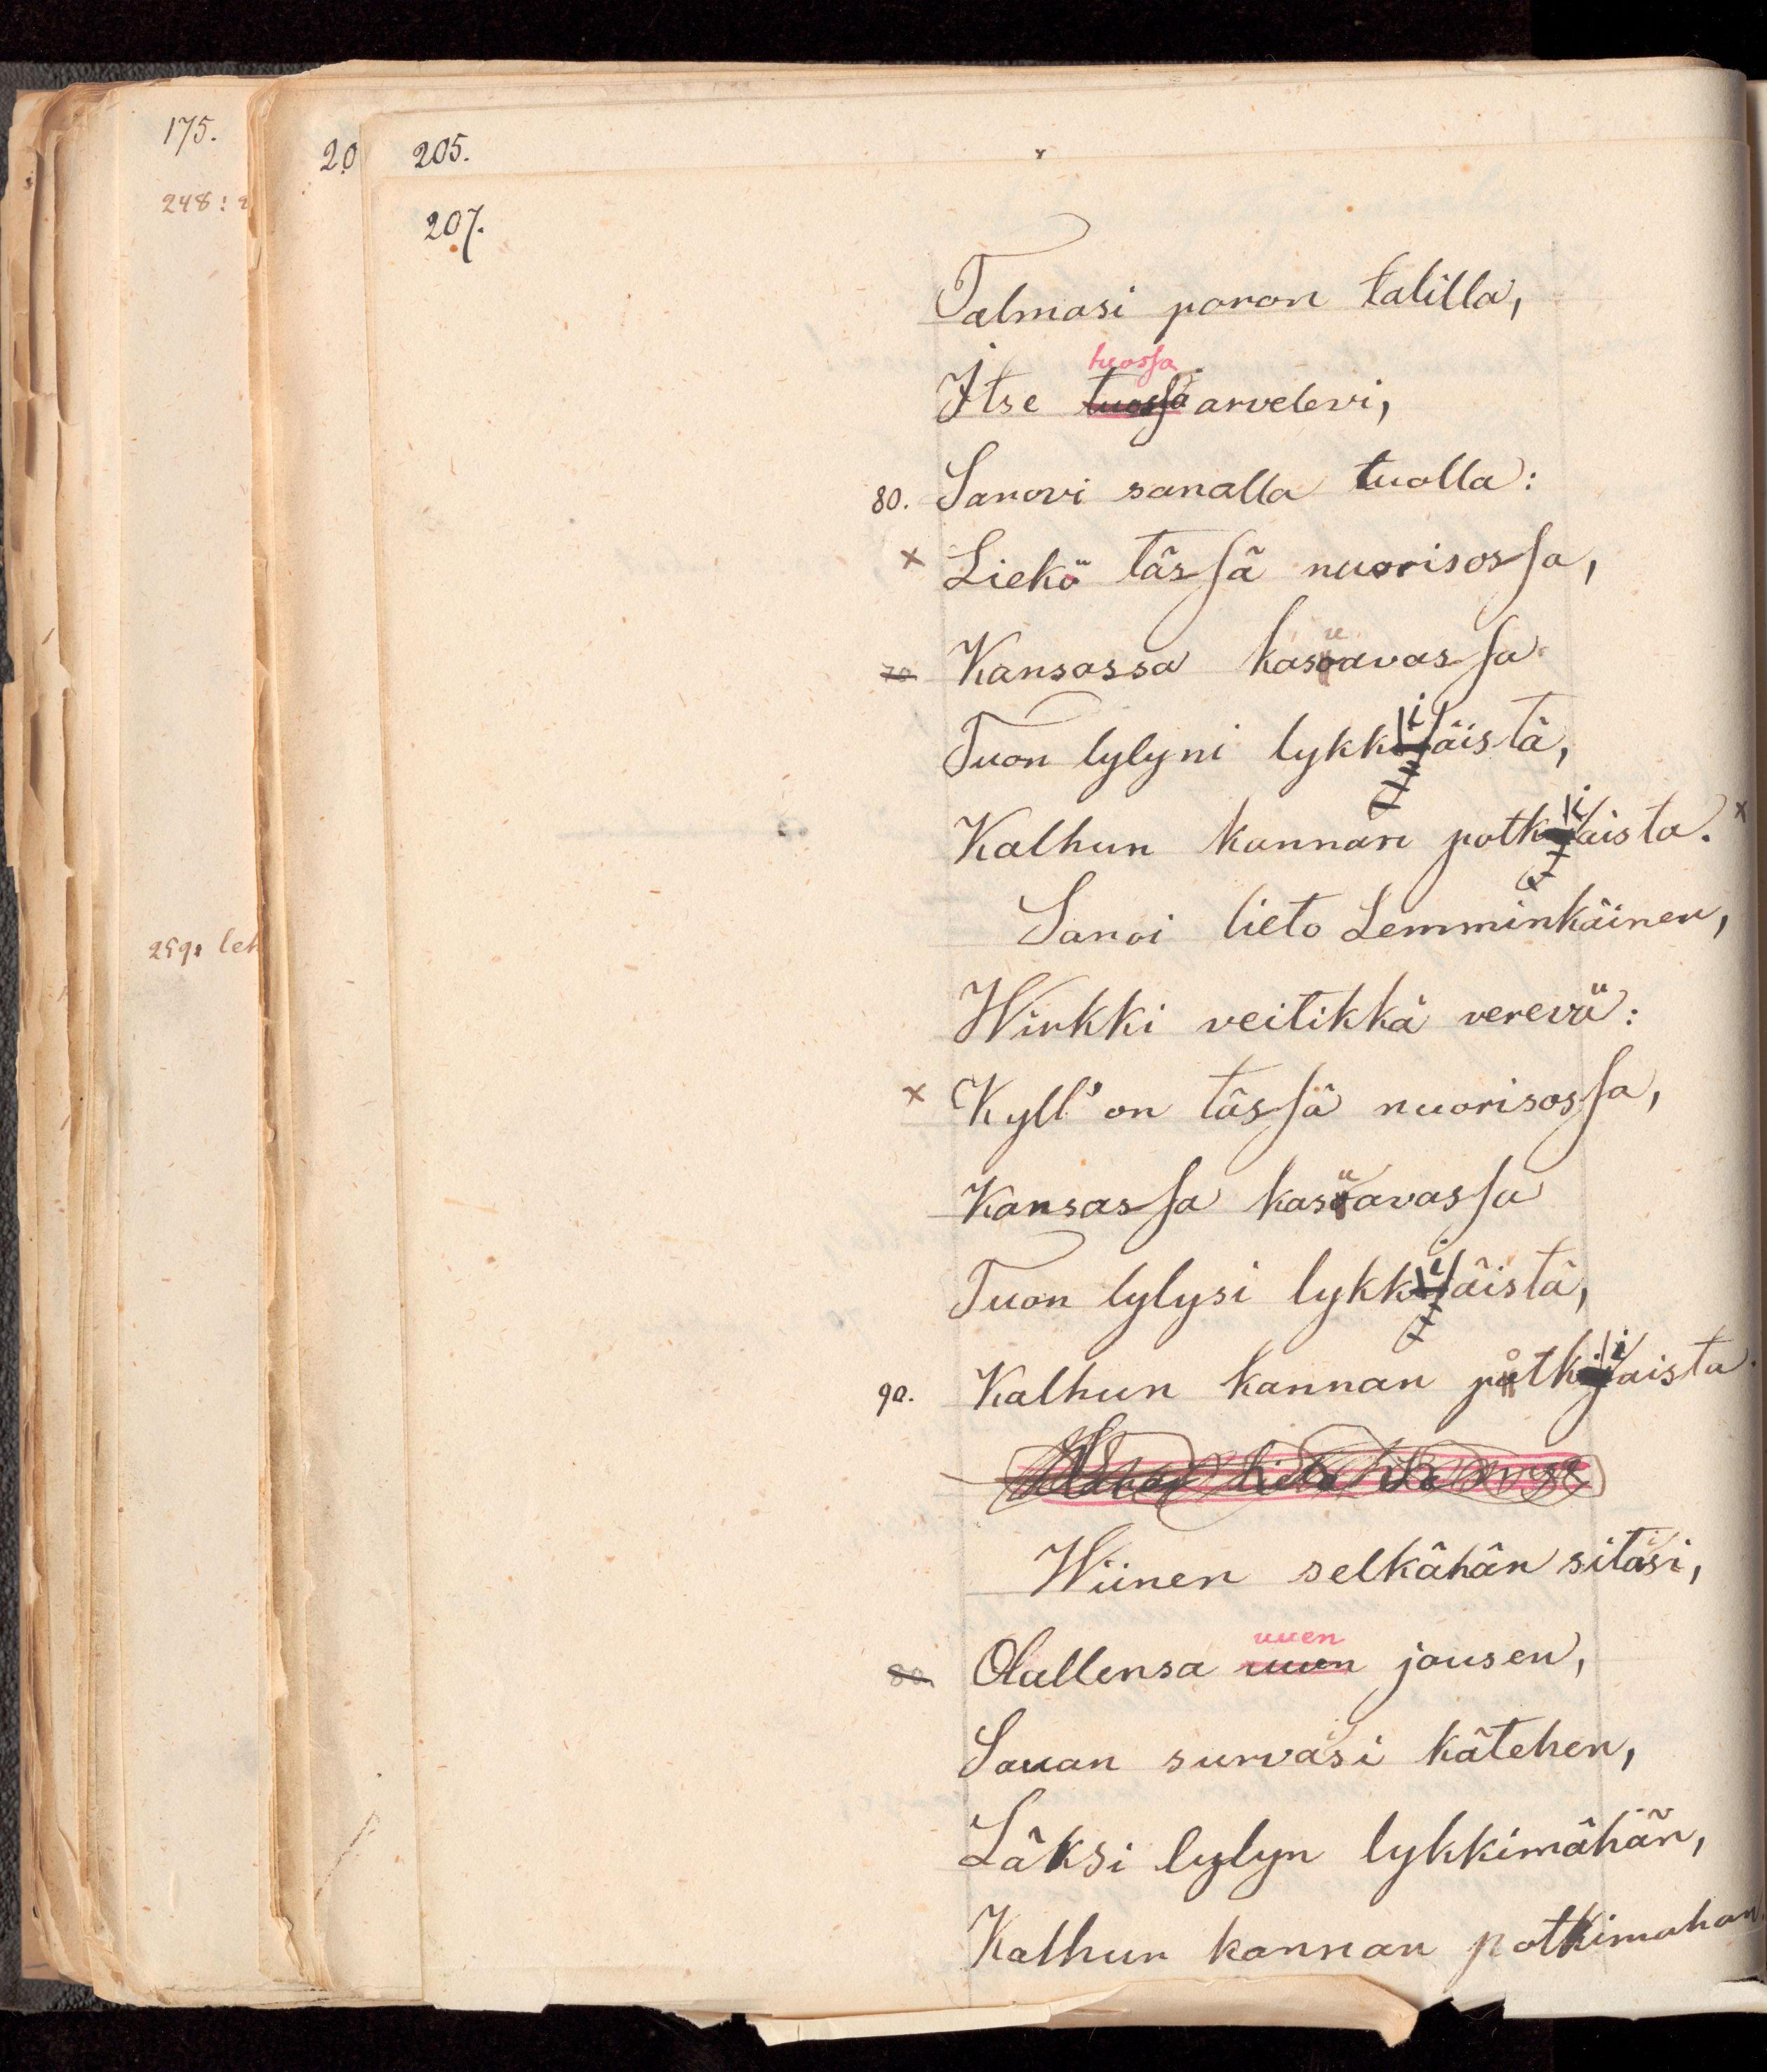 175.
20
205.
248:
207.
Talmasi poron talilla,
tuossa
Itse tuossa arvelevi,
80. Sanovi sanalla tuolla:
× Liekö tässä nuorisossa,
u
70 Kansassa kasoavassa
i
Tuon lylyni lykkäistä,
i
Kalhun kannan potkaista. ×
Sanoi lieto Lemminkäinen,
Wirkki veitikkä verevä:
× Kyll' on tässä nuorisossa,
u
Kansassa kasoavassa
i
Tuon lylysi lykkäistä,
o i
90. Kalhun kannan potkjaista.
259: leh
Wiinen selkähän sitasi,
uuen
80 Olallensa uuen jousen,
Sauan survasi kätehen,
Läksi lylyn lykkimähän,
Kalhun kannan potkimahan.